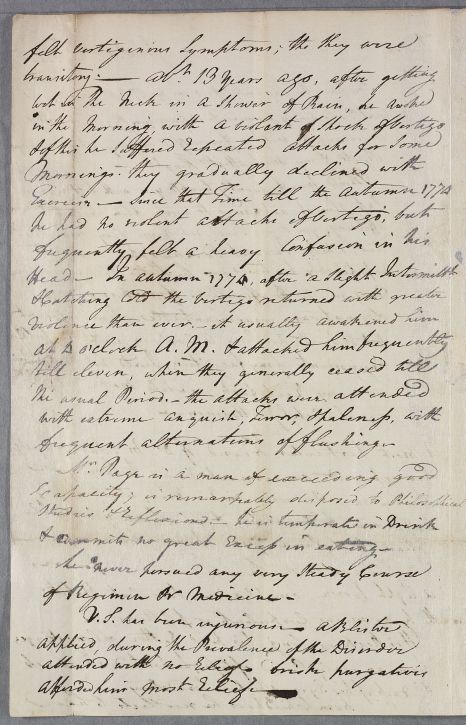 felt vertigenous Symptoms; tho they were
transitory. — abt. 13 years ago, after getting
wet in the Neck in a Shower of Rain, he awoke
in the Morning with a violent Shock of Vertigo
& of this he suffered repeated attacks for some
Mornings. they gradually declined with
Exercise — Since that Time till the autumn 1774
he had no violent attacks of Vertigo, but
frequently felt a heavy Confusion in his
Head — In autumn 1774, after a slight Intermittt
the vertigo returned with greater
violence than ever. — it usually awakened him
at 4 o'clock A.M. & attacked him frequently
till eleven, when they generally ceased till
the usual Period. — the attacks were attended
with extreme anguish, Terror, & paleness, with
frequent alternations of flushing —
Mr. Page is a man of exceeding good
Capacity; is remarkably disposed to Philosophical
Studies & Reflexions — he is temperate in Drink
& commits no great Excess in eating —
he never pursued any very Steady Course
of Regimen or Medicine —
V.S. has been injurious — a Blister
applied, during the Prevalence of the Disorder
attended with no Relief — brisk purgatives
afforded him most Relief —